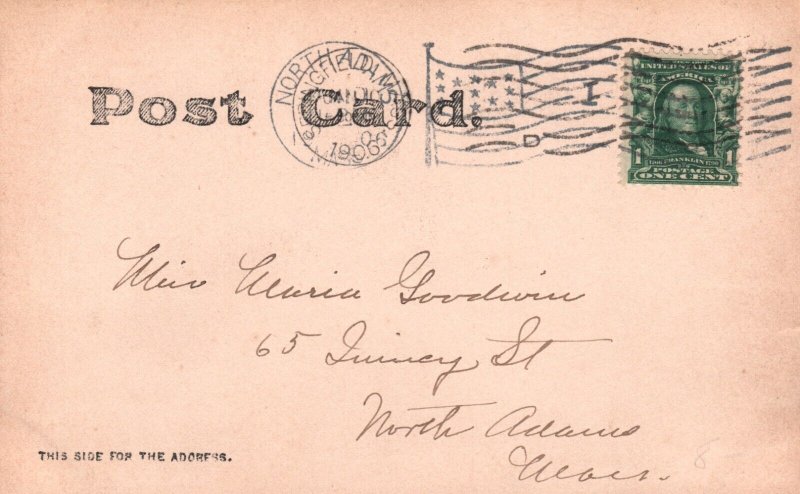 Post Card.
NORTH ADAMS
1906
MASS.
D
I
UNITED STATES OF
AMERICA
1 FRANKLIN 1
POSTAGE
ONE CENT
Miss Maria Goodwin
65 Quincy St
North Adams
Mass.
THIS SIDE FOR THE ADDRESS.
8